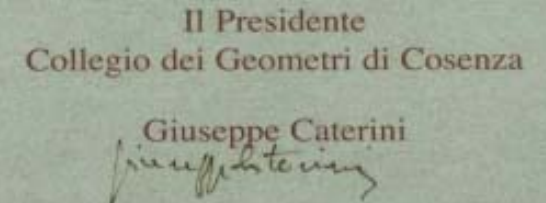 Il Presidente
Collegio dei Geometri di Cosenza
Giuseppe Caterini